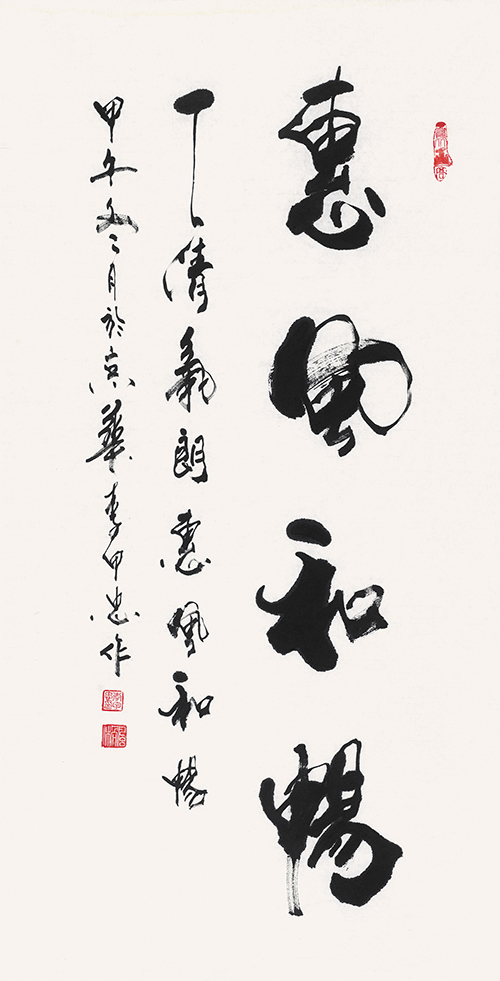 惠風和暢
天清氣朗惠風和暢
甲午冬月於京華李甲忠作